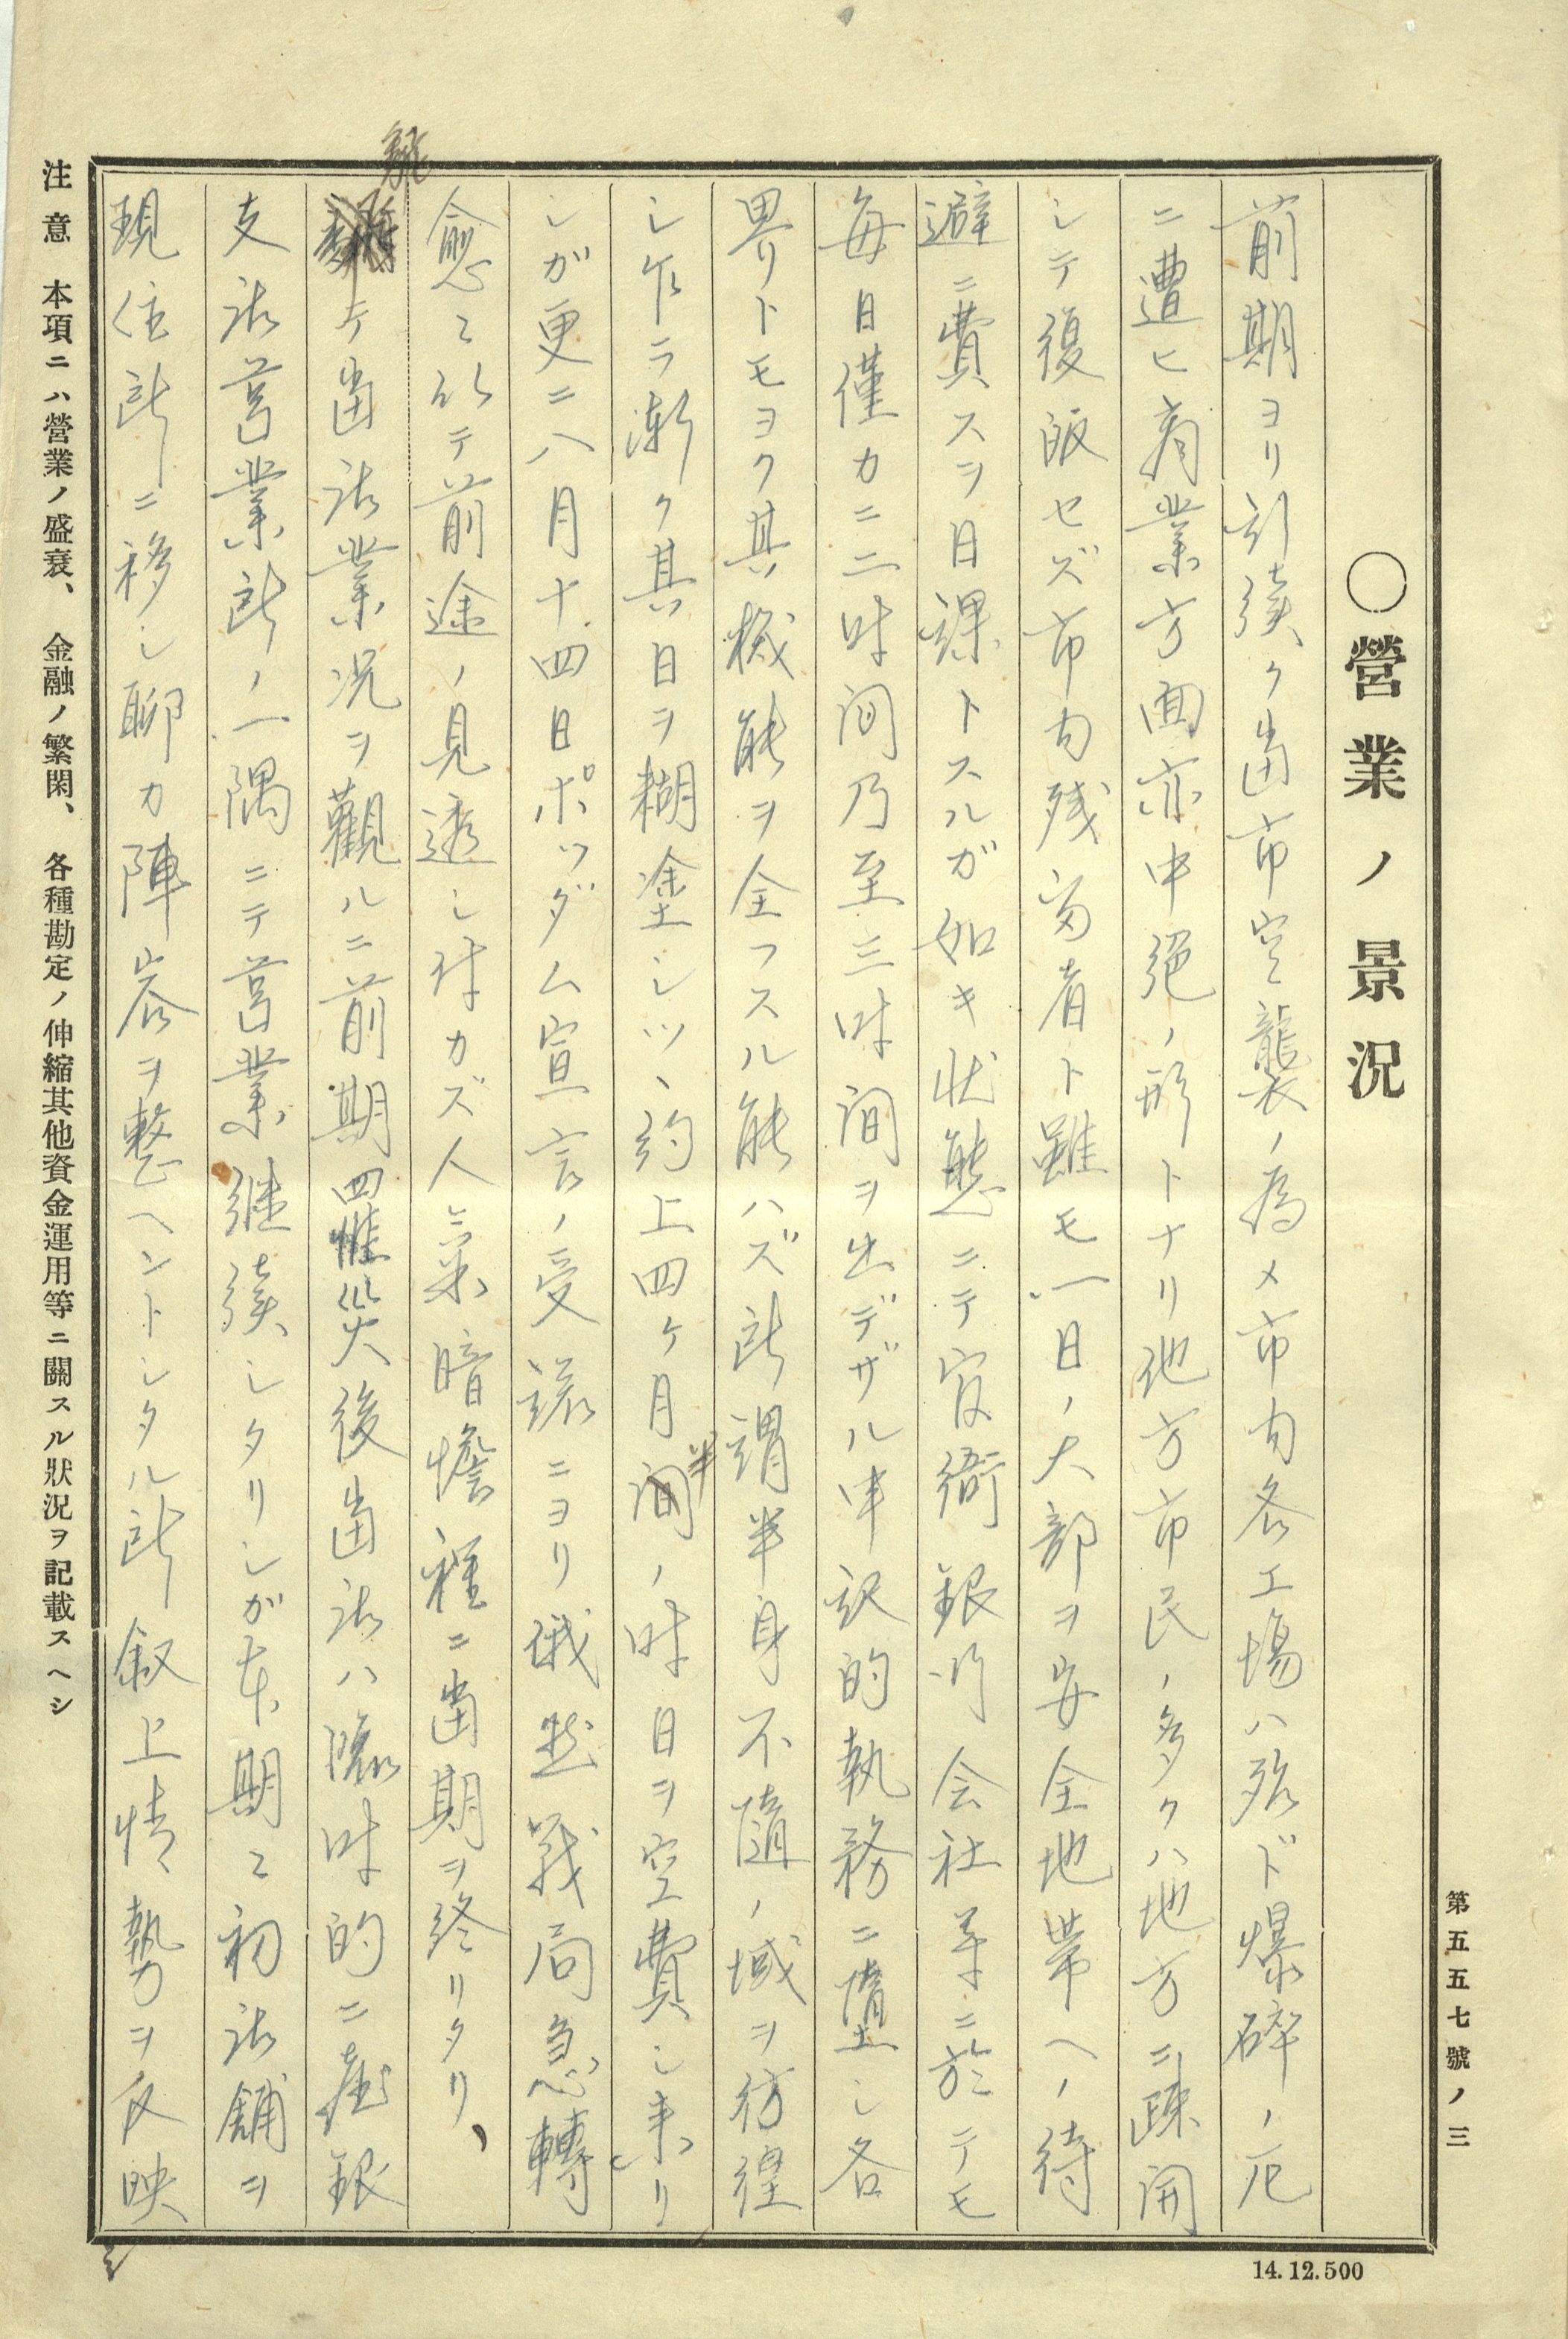 第五五七號ノ三
○營業ノ景況
前期ヨリ引続ク當市空襲ノ為メ市内各工場ハ殆ド爆砕ノ厄
ニ遭ヒ商業方面亦中絶ノ形トナリ他方市民ノ多クハ地方ニ疎開
シテ復皈セズ市内残留者ト雖モ一日ノ大部ヲ安全地帯ヘノ待
避ニ費スヲ日課トスルガ如キ状態ニテ官衙銀行会社等ニ於テモ
毎日僅カニ二時间乃至三時间ヲ出デザル申訳的執務ニ堕シ各
界リトモヨク其機能ヲ全フスル能ハズ所謂半身不隨ノ域ヲ彷徨
シ乍ラ漸ク其日ヲ糊塗シツヽ約上四ケ月半ノ時日ヲ空費シ来リ
シガ更ニ八月十四日ポツダム宣言ノ受諾ニヨリ俄然戦局急轉
愈々以テ前途ノ見透シ付カズ人気暗憺裡ニ當期ヲ終リタリ、
飜テ當店業況ヲ觀ルニ前期四罹災後當店ハ臨時的ニ藝銀
支店営業所ノ一隅ニテ営業継続シタリシガ本期ニ初店舗ヲ
現住所ニ移シ聊カ陣容ヲ整ヘントシタル所叙上情勢ヲ反映
シ
注意 本項ニハ營業ノ盛衰、金融ノ繁閑、各種勘定ノ伸縮其他資金運用等ニ關スル狀況ヲ記載スヘシ
14.12.500